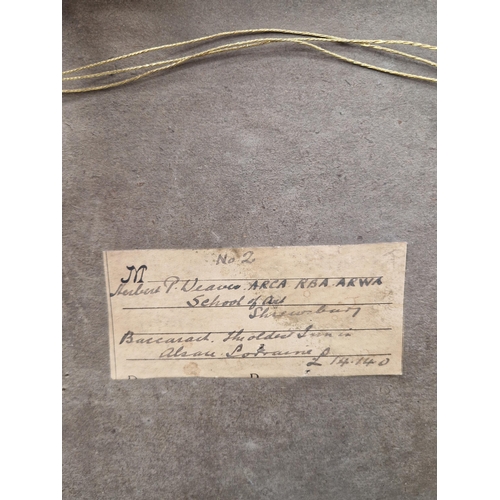 No 2
M
Herbert P. Weaver ARCA RBA ARWA
School of Art
Shrewsbury
Baccarach. The oldest Inn in
Alsace Lorraine £ 14.14.0